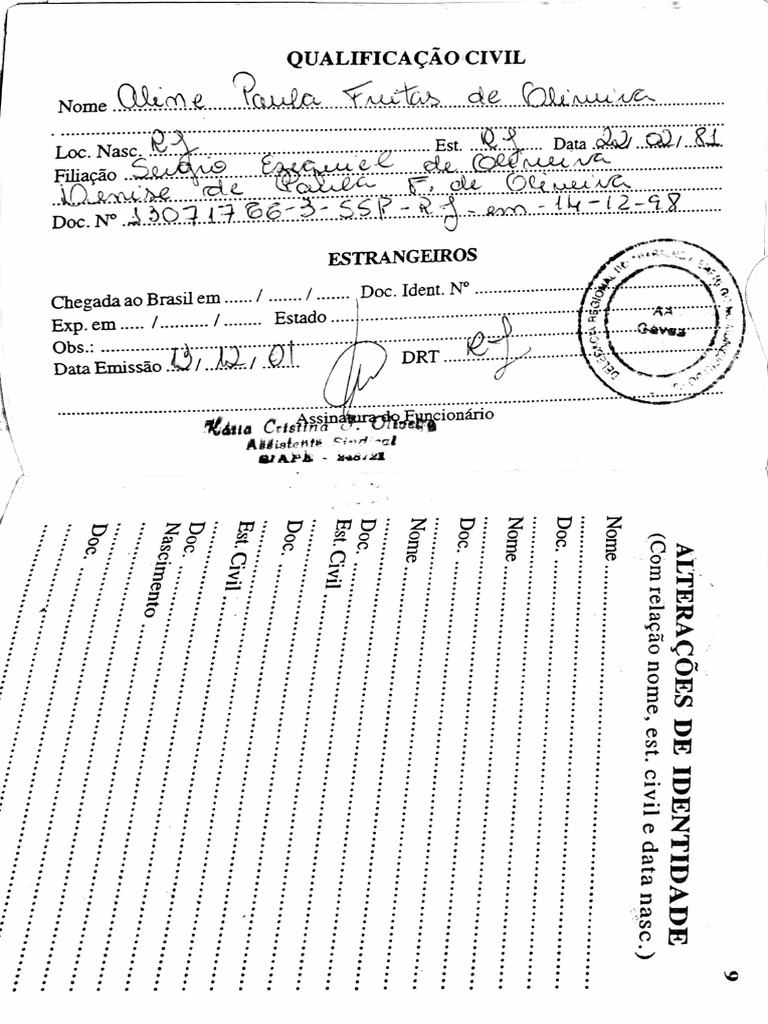 QUALIFICAÇÃO CIVIL
Nome Aline Paula Freitas de Oliveira
Loc. Nasc. RJ Est. RJ Data 22/02/81
Filiação Sergio Ezequiel de Oliveira
Denise de Paula F. de Oliveira
Doc. Nº 13071766-3-SSP-RJ-em-14-12-98
ESTRANGEIROS
Chegada ao Brasil em ...... / ....... / ....... Doc. Ident. Nº
Exp. em ..... / ........... / ......... Estado
Obs.:
Data Emissão 13/12/01 DRT RJ
Assinatura do Funcionário
Kátia Cristina J. Oliveira
Assistente Sindical
DELEGACIA REGIONAL DO TRABALHO
Gávea
ALTERAÇÕES DE IDENTIDADE
(Com relação nome, est. civil e data nasc.)
Nome
Doc.
Nome
Doc.
Nome
Doc.
Est. Civil
Doc.
Est. Civil
Doc.
Nascimento
Doc.
9